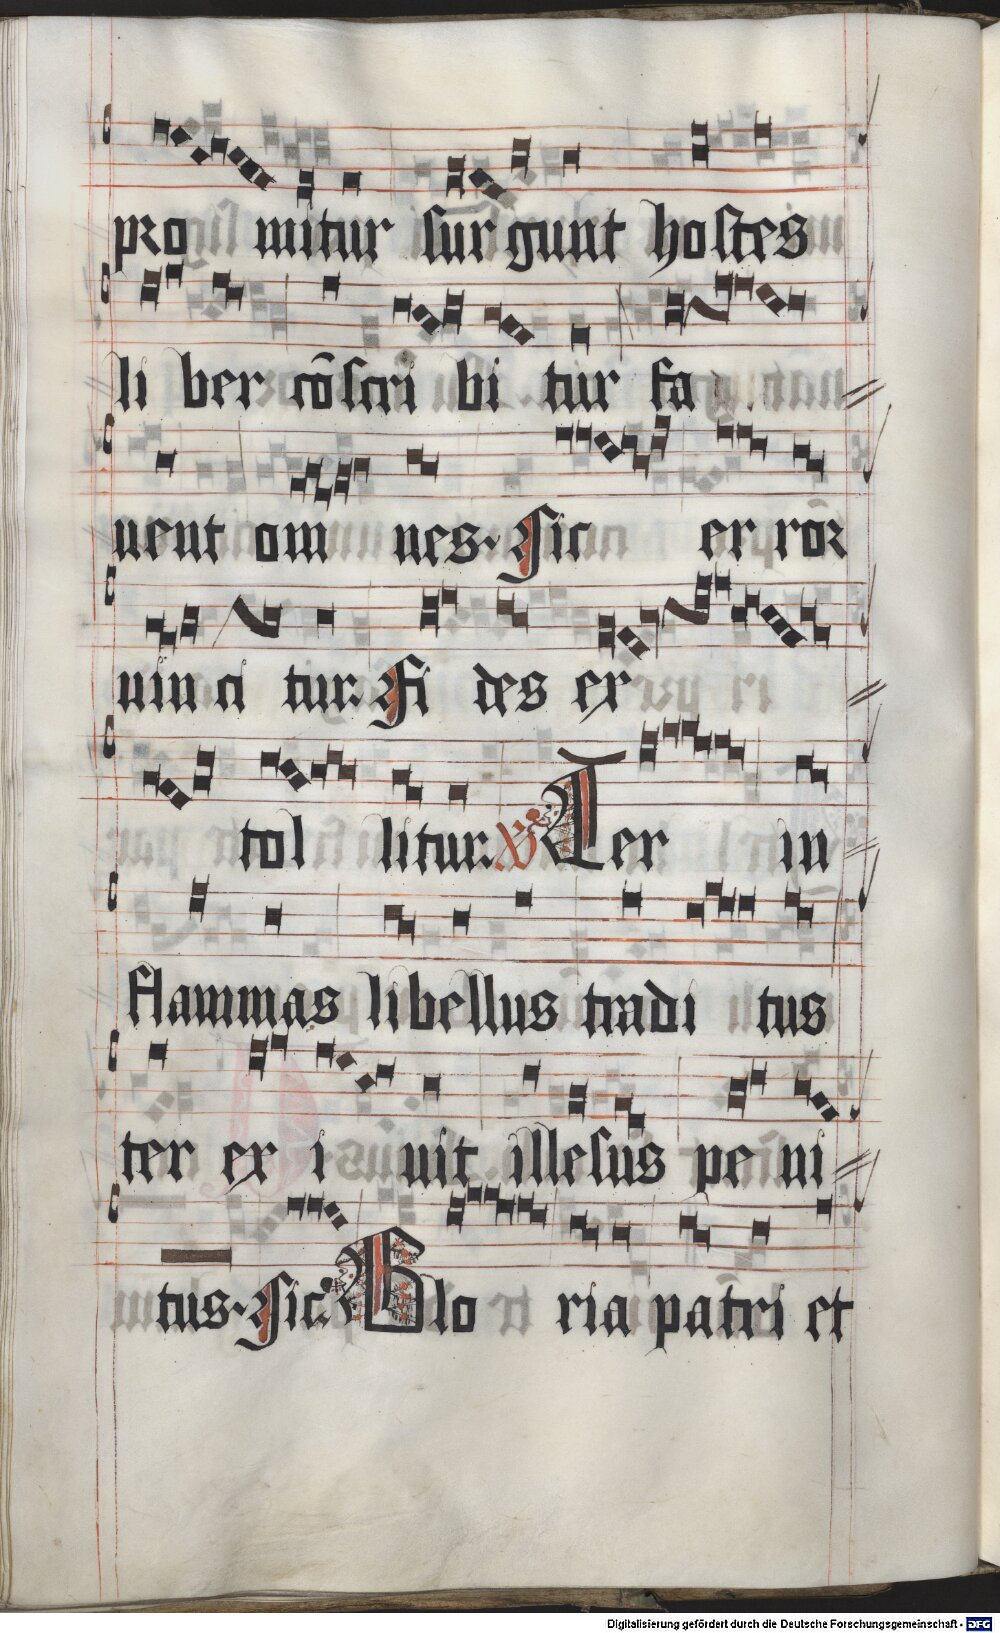 pro mitur surgunt hostes
li ber cōscri bi tur fa
uent om nes. Sic er ror
uin ci tur. Fi des ex
tol litur. V Ter in
flammas libellus tradi tus
ter ex i uit illesus pe ni
tus. Sic. Glo ria patri et
Digitalisierung gefördert durch die Deutsche Forschungsgemeinschaft - DFG